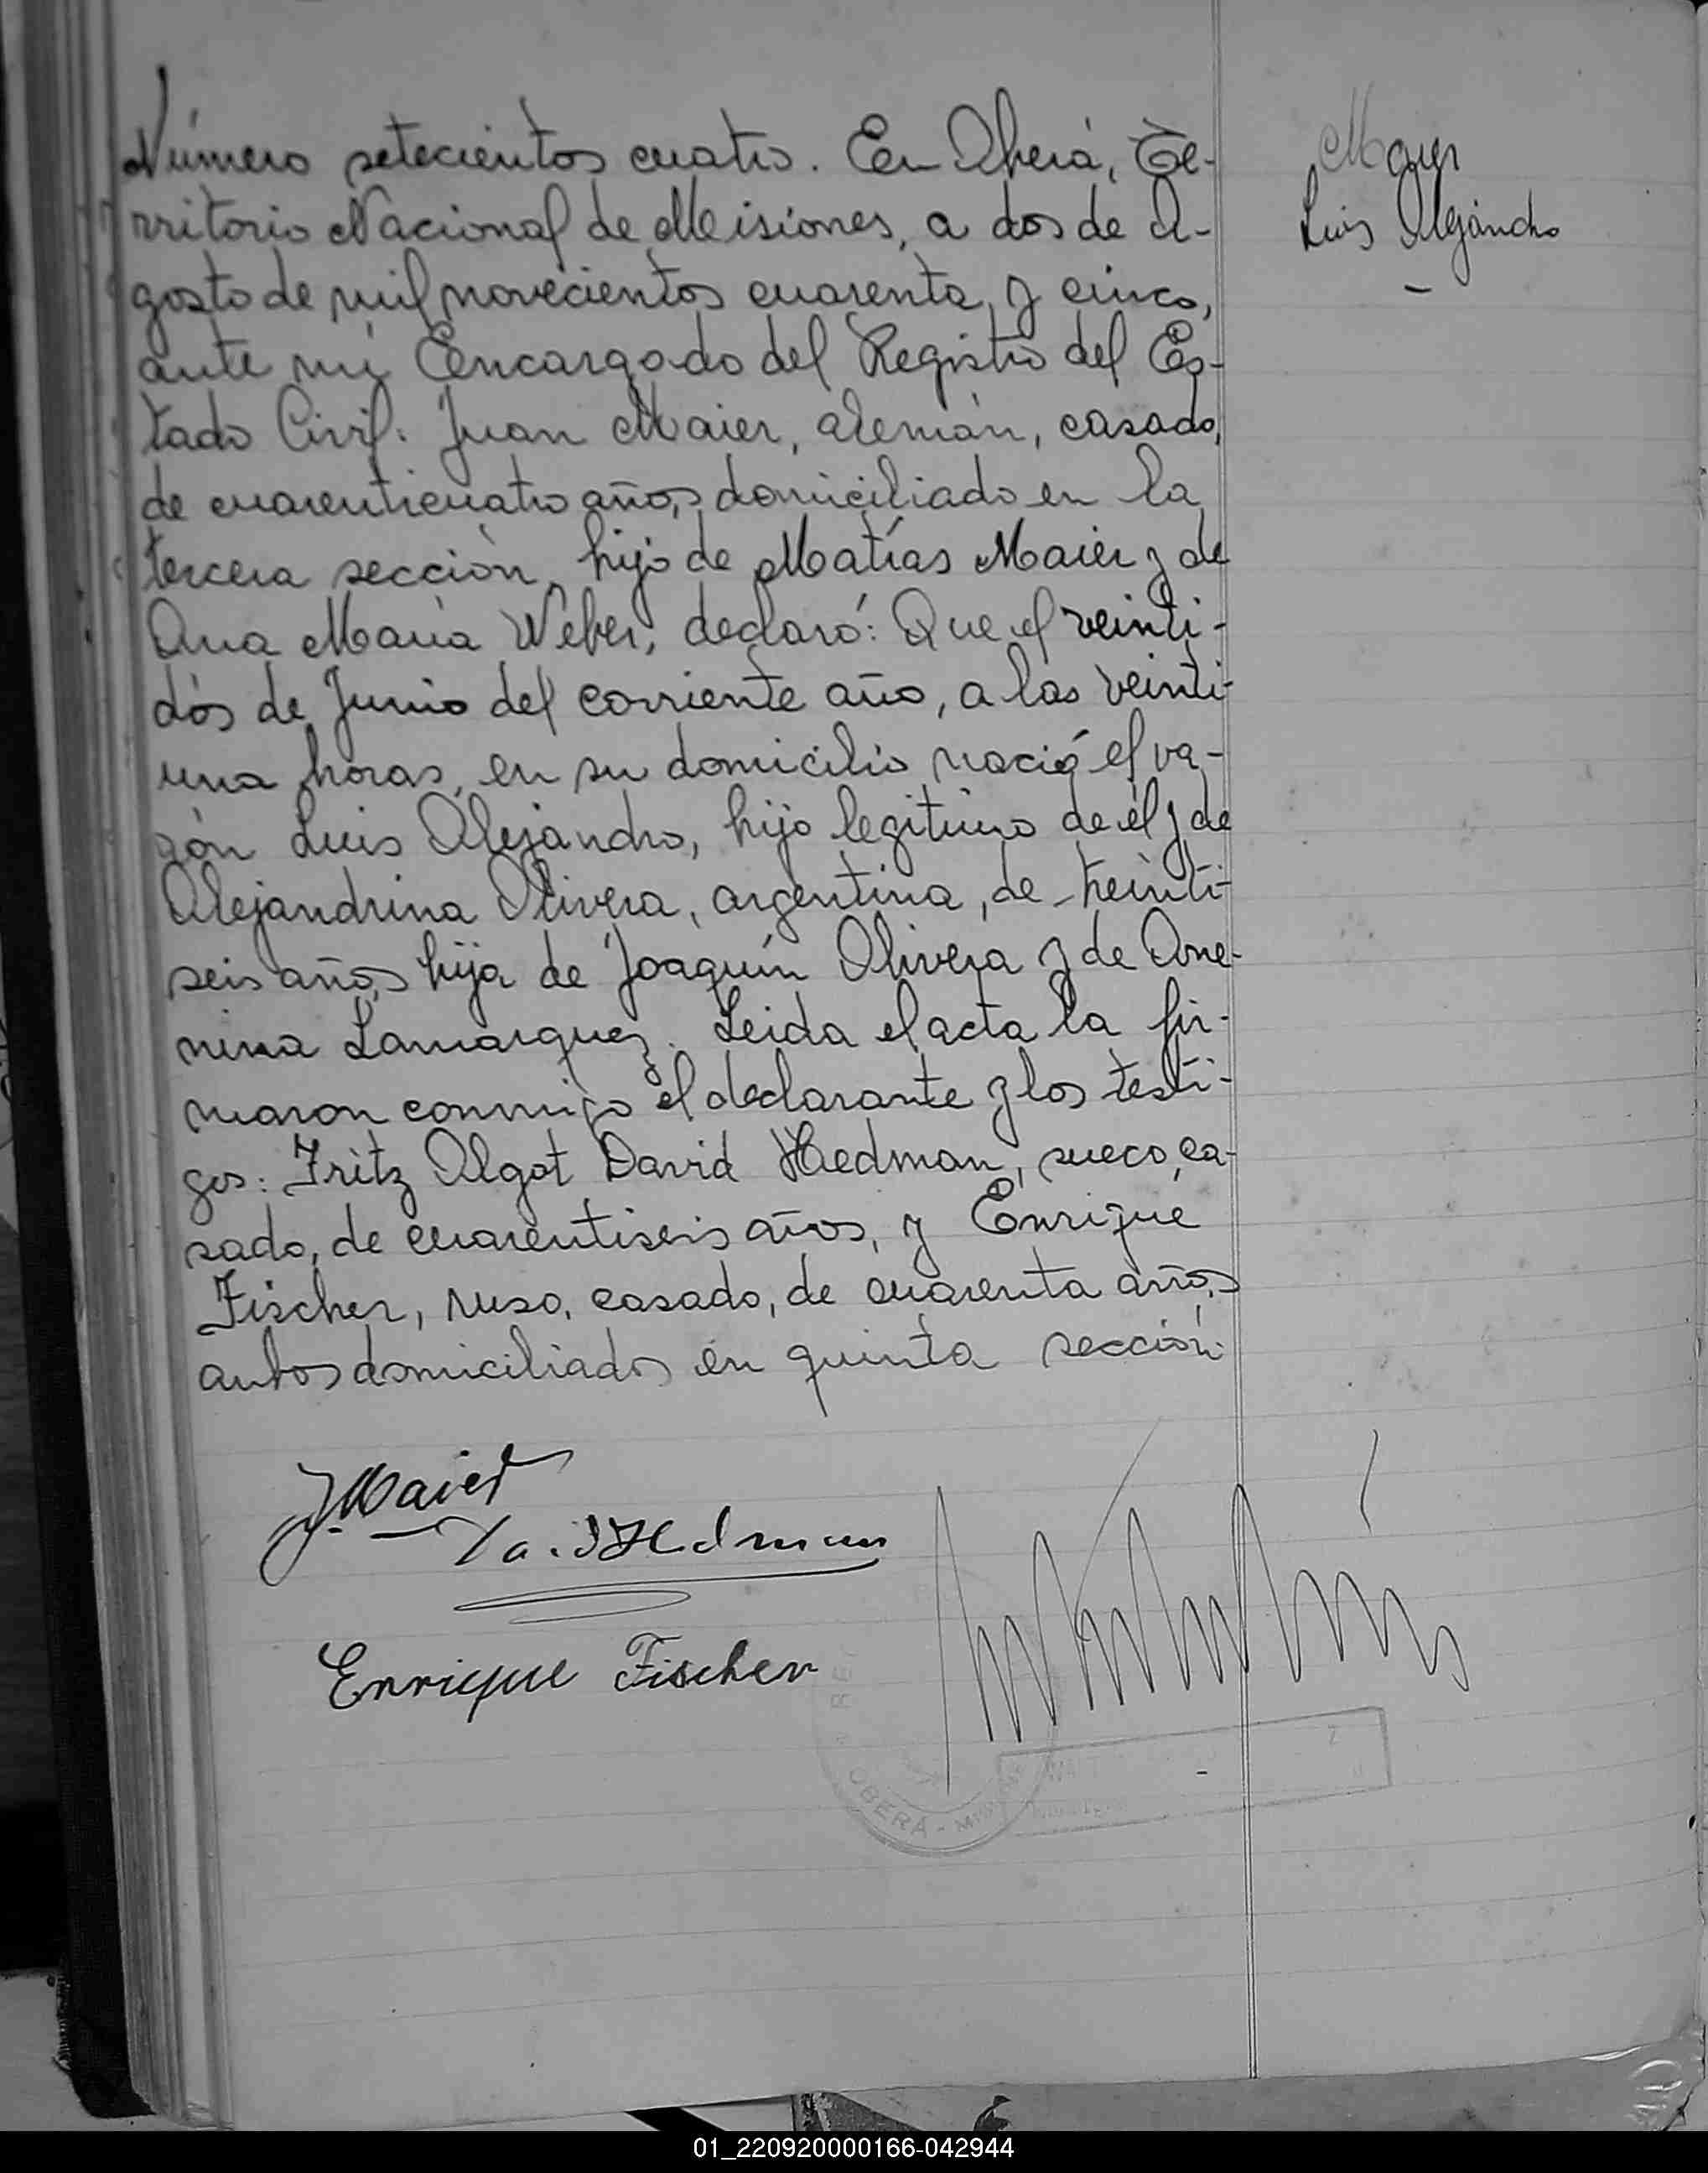 Número setecientos cuatro. En Oberá, Te-
rritorio Nacional de Misiones, a dos de A-
gosto de mil novecientos cuarenta y cinco,
ante mí Encargado del Registro del Es-
tado Civil: Juan Maier, alemán, casado,
de cuarenticuatro años, domiciliado en la
tercera sección, hijo de Matías Maier y de
Ana María Weber, declaró: Que el veinti-
dós de Junio del corriente año, a las veinti-
una horas, en su domicilio nació el va-
rón Luis Alejandro, hijo legítimo de él y de
Alejandrina Olivera, argentina, de treinti-
seis años, hija de Joaquín Olivera y de
Lamarquez. Leida el acta la fir-
maron conmigo el declarante y los testi-
gos: Fritz Algot David Hedman, sueco, ca-
sado, de cuarentiseis años, y Enrique
Fischer, ruso, casado, de cuarenta años,
ambos domiciliados en quinta sección.
Maier
Luis Alejandro
J. Maier
Enrique Fischer
OBERÁ - 
01_220920000166-042944